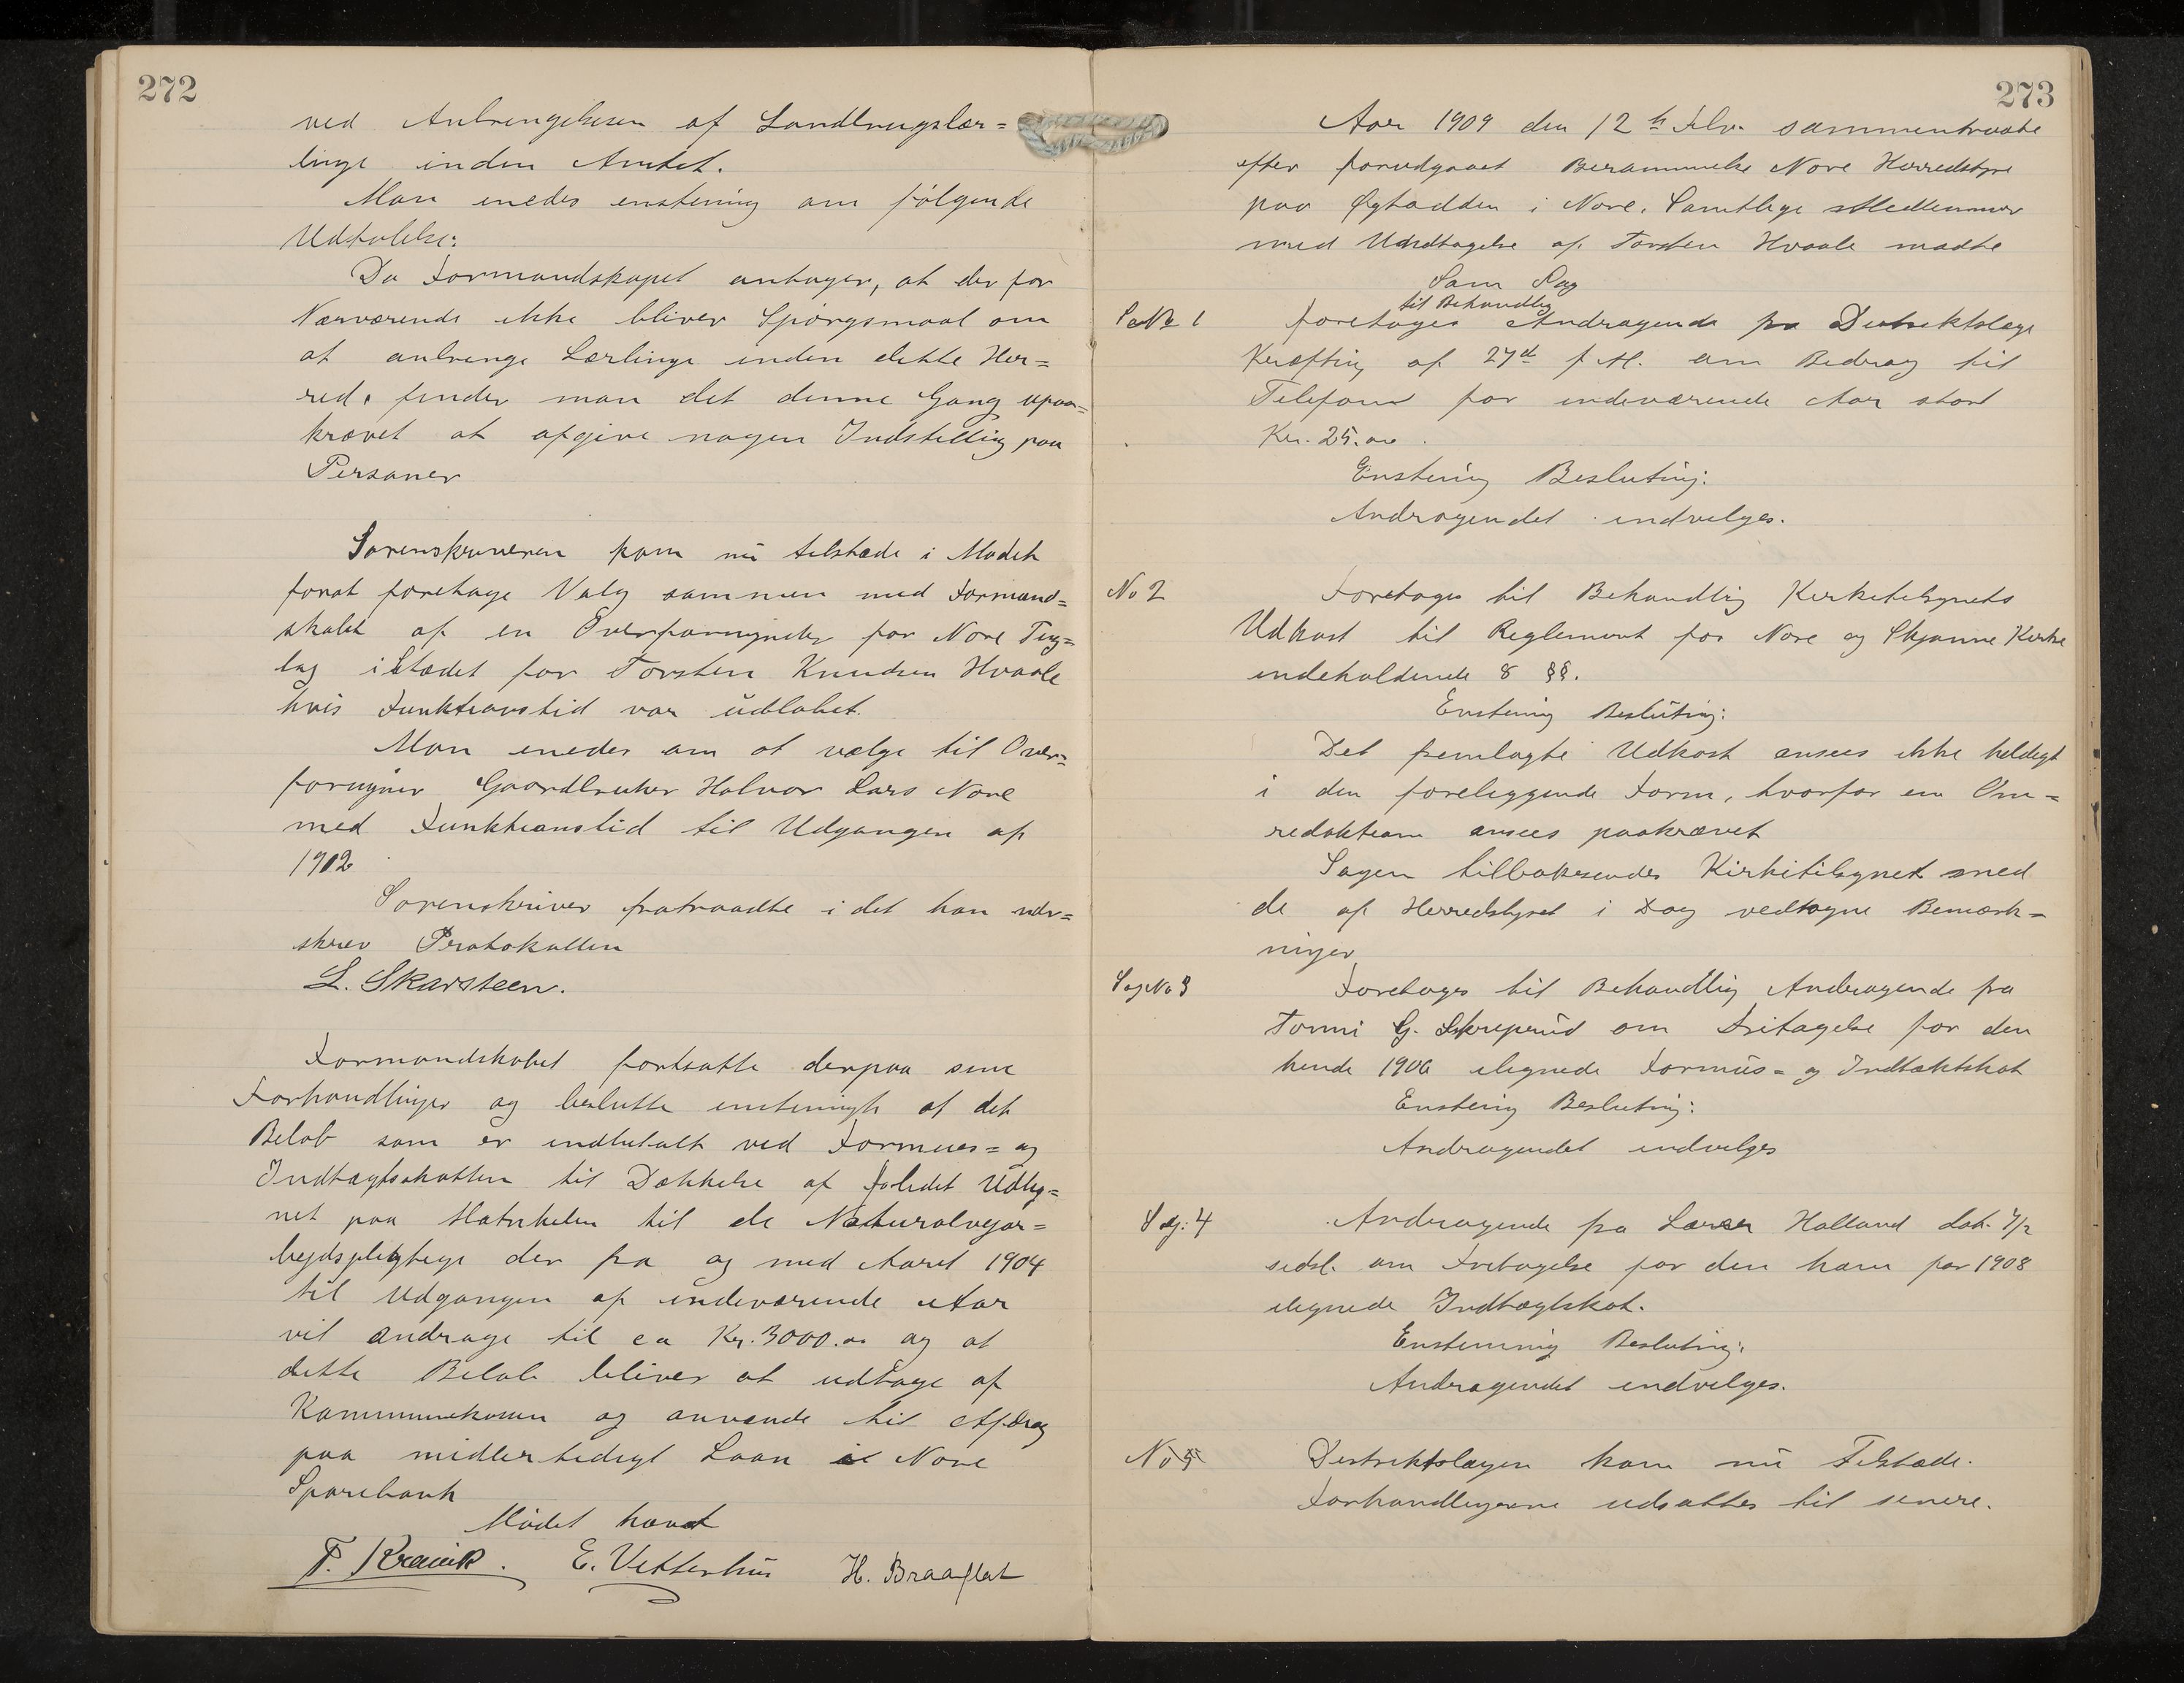 272
ved Anbringelsen af Landbrugslær=
linge inden Amtet.
Man enedes enstemig om følgende
Udtalelse:
Da Formandskapet antager, at der for
Nærværende ikke bliver Spørgsmaal om
at anbringe Lærlinge inden dette Her=
red, finder man det denne Gang upaa=
krævet at afgive nogen Indstilling paa
Personer
Sorenskriveren kom nu tilstæde i Mødet
forat foretage Valg sammen med Formand=
skabet af en Overformynder for Nore Ting=
lag istædet for Torsten Knudsen Hvaale
hvis Funktionstid var udløbet.
Man enedes om at vælge til Over=
formynder Gaardbruker Halvor Lars Nore
med Funktionstid til Udgangen af
1912
Sorenskriver fratraadte i det han under=
skrev Protokollen
L. Skarsteen.
Formandskabet fortsatte derpaa sine
Forhandlinger og beslutte enstemigt at det
Beløb som er indbetalt ved Formues= og
Indtægtsskatten til Dækkelse af Udlig=
net paa Matrikelen til de Naturalvejar=
bejdspligtige der fra og med Aaret 1904
til Udgangen af indeværende Aar
vil andrage til ca Kr. 3000.00 og at
dette Beløb bliver at udtage af
Kommunekassen og anvende til Afdrag
paa midlertidigt Laan i Nore
Sparebank
Mødet hævet
E. Vetterhus H. Braaflat
273
Aar 1909 den 12te Febr. sammentraadte
efter forudgaaet Berammelse Nore Herredstyre
paa Øygardden i Nore. Samtlige Medlemmer
med Undtagelse af Torsten Hvaale mødte
Som Sag
til Behandling
Sag No 1 foretages Andragende fra Distriktslæge
Kræfting af 27de f. M. om Bidrag til
Telefon for indeværende Aar stort
Kr. 25.00
Enstemig Beslutning:
Andragendet indvilges.
No 2 Foretages til Behandling Kirketilsynets
Udkast til Reglement for Nore og Skjønne Kirke
indeholdende 8 §§.
Enstemig Beslutning:
Det fremlagte Udkast ansees ikke heldigt
i den foreliggende Form, hvorfor en Om=
redaktion ansees paakrævet
Sagen tilbakesendes Kirketilsynet med
de af Herredstyret i Dag vedtagne Bemærk=
ninger
Sag No 3 Foretages til Behandling Andragende fra
Tonni G. Skreperud om Fritagelse for den
hende 1906 ilignede Formus= og Indtæktskat
Enstemig Beslutning:
Andragendet indvilges
Sag: 4 Andragende fra Lærer Holland dat. 7/2
sidstl. om Fritagelse for den ham for 1908
ilignede Indtægtskat.
Enstemmig Beslutning:
Andragendet indvilges.
No 5 Distriktslægen kom nu Tilstæde.
Forhandlingerne udsattes til senere.